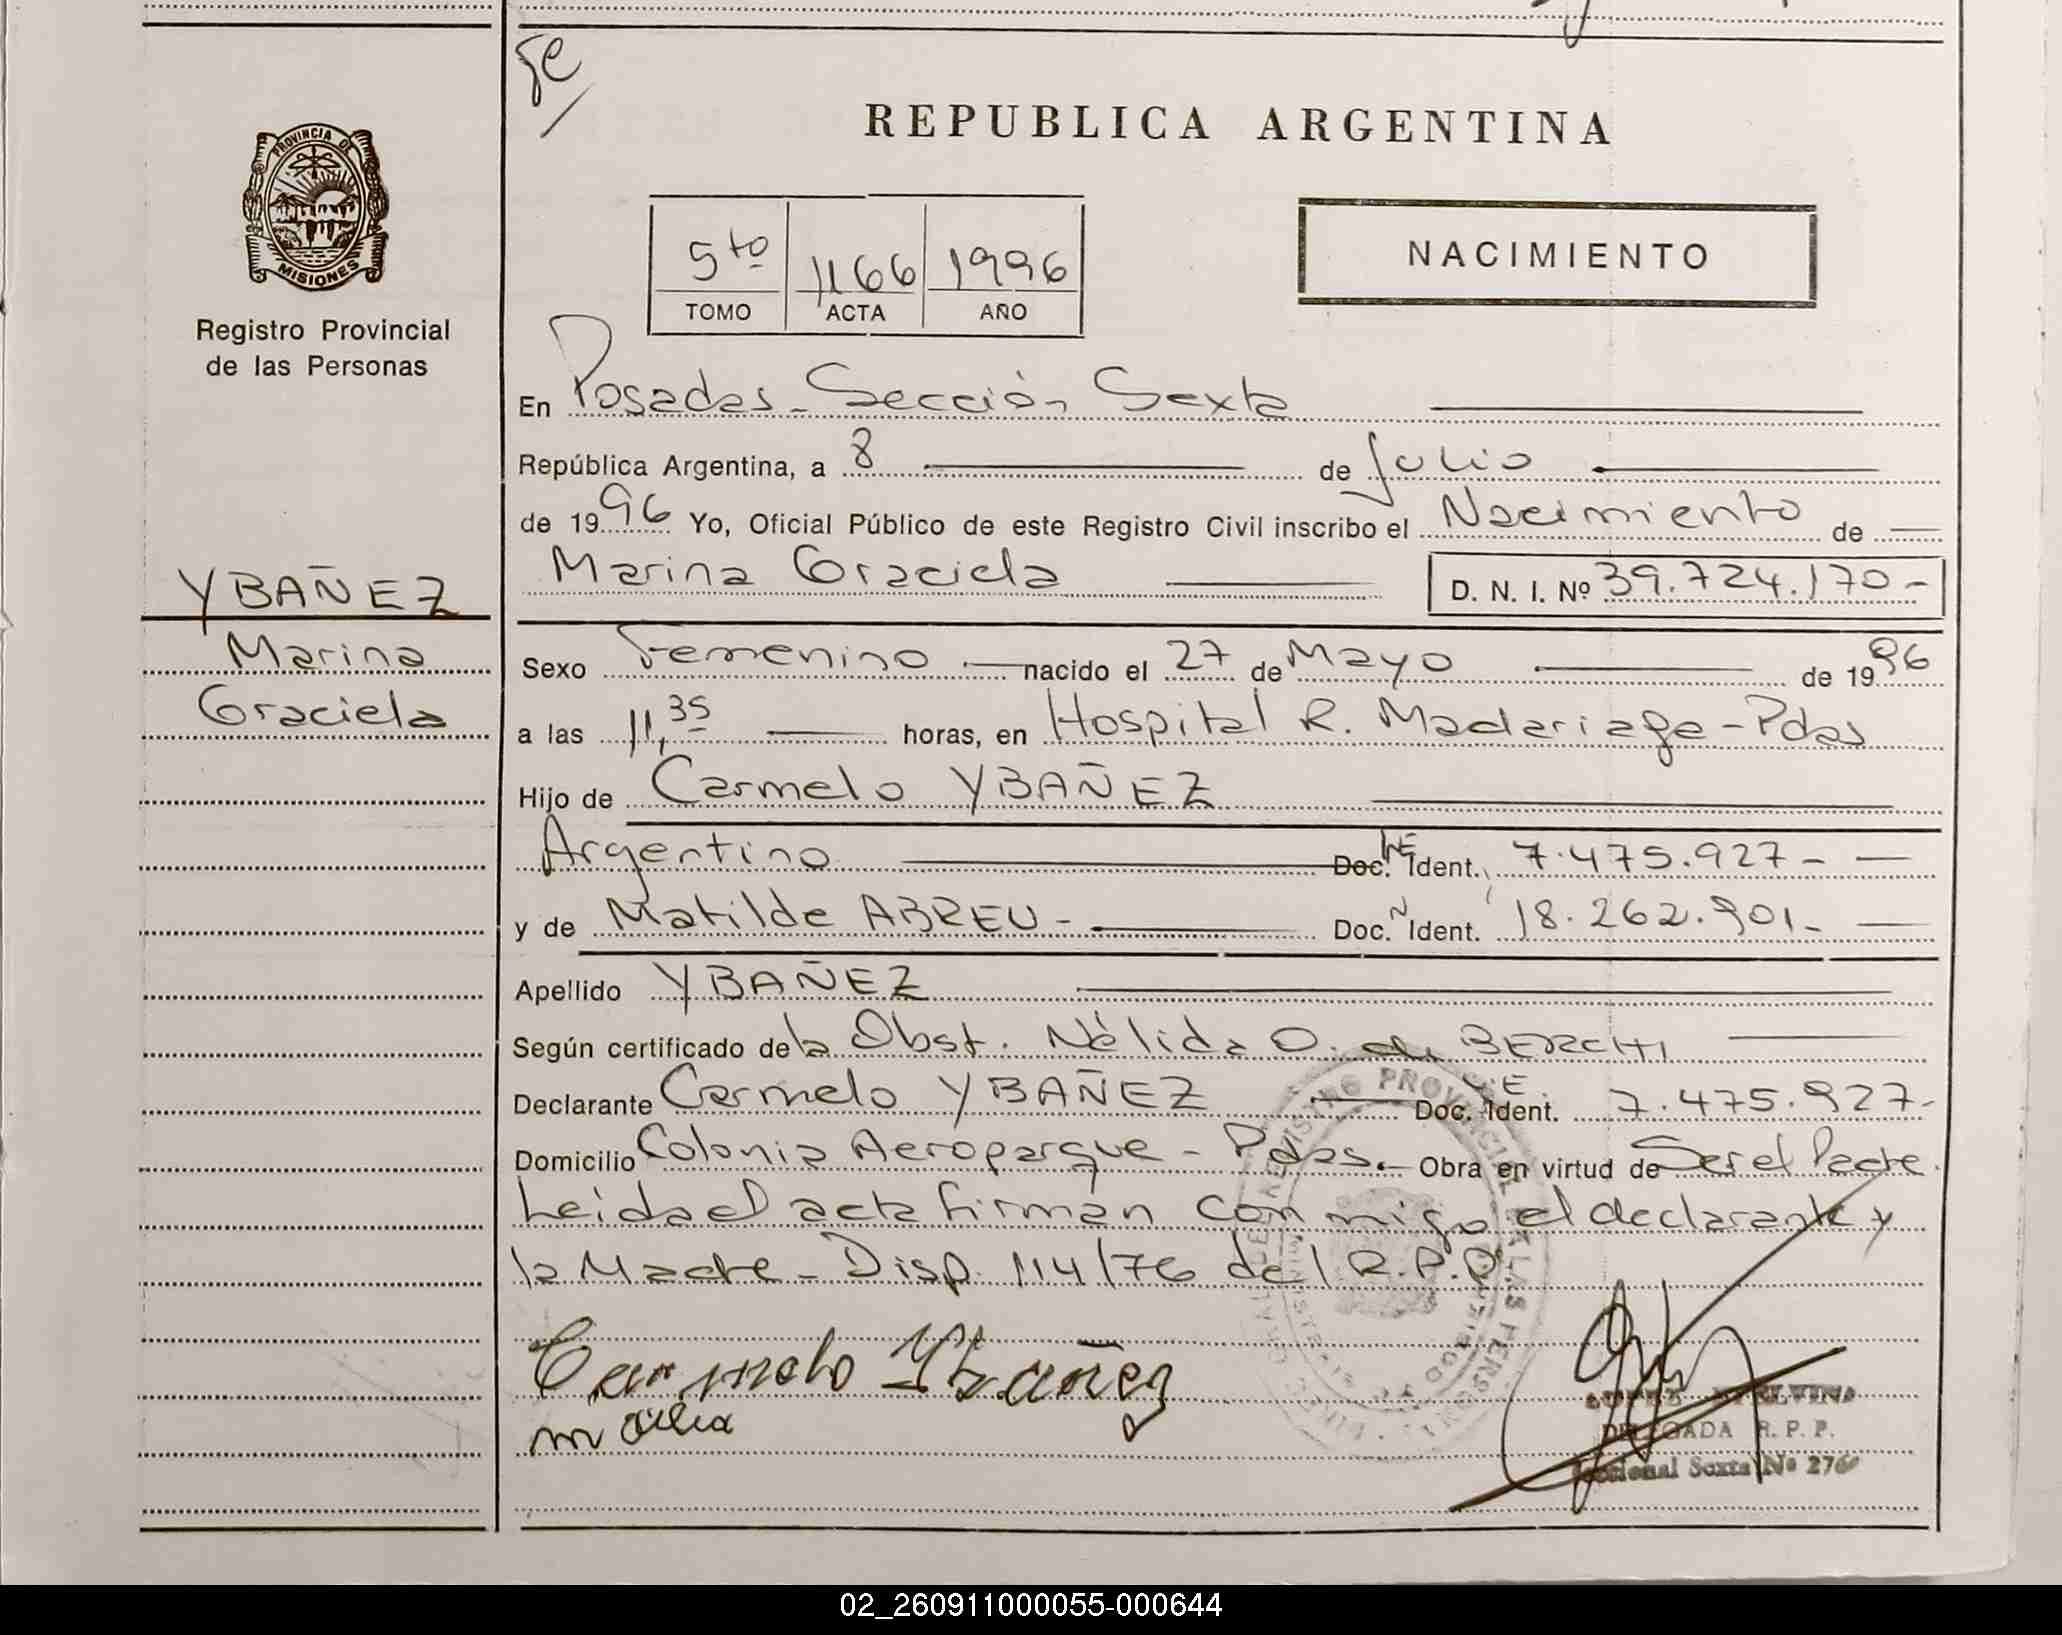 Se
PROVINCIA DE
MISIONES
Registro Provincial
de las Personas
YBAÑEZ
Marina
Graciela
REPUBLICA ARGENTINA
5to 1166 1996
TOMO ACTA AÑO
NACIMIENTO
En Posadas - Sección Sexta
República Argentina, a 8 de Julio
de 1996 Yo, Oficial Público de este Registro Civil inscribo el Nacimiento de
Marina Graciela D. N. I. Nº 39.724.170-
Sexo Femenino nacido el 27 de Mayo de 1996
a las 11,35 horas, en Hospital R. Madariaga - Pdas
Hijo de Carmelo YBAÑEZ
Argentino Doc. Ident. 7.475.927-
y de Matilde ABREU - Doc. N Ident. 18.262.901-
Apellido YBAÑEZ
Según certificado de la Obst. Nélida O. de BERCHI
Declarante Carmelo YBAÑEZ Doc. Ident. 7.475.927-
Domicilio Colonia Aeroparque - Pdas. Obra en virtud de Ser el Padre.
Leida el acta firman conmigo el declarante y
la Madre - Disp. 114/76 del R.P.P.
Carmelo Ybañez
DELEGADA R. P. P.
Seccional Sexta Nº 276
02_260911000055-000644